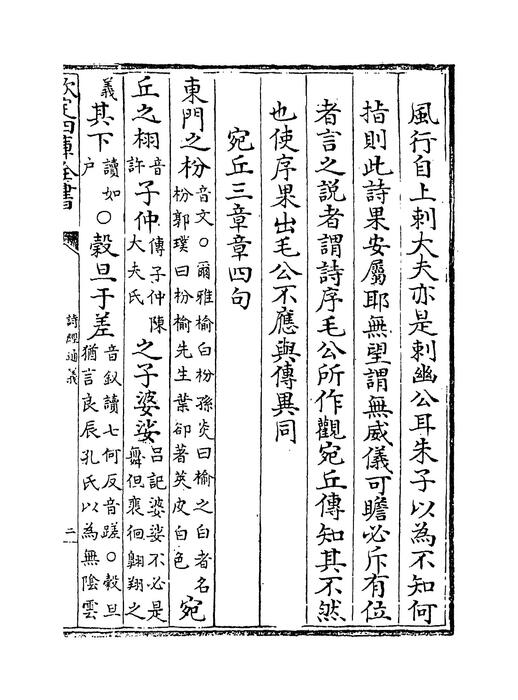 風行自上刺大夫亦是刺幽公耳朱子以為不知何
指則此詩果安屬耶無望謂無威儀可瞻必斥有位
者言之説者謂詩序毛公所作觀宛丘傳知其不然
也使序果出毛公不應與傳異同
宛丘三章章四句
東門之枌音文○爾雅榆白枌孫炎曰榆之白者名枌郭璞曰枌榆先生葉卻著莢皮白色宛
丘之栩音許子仲傳子仲陳大夫氏之子婆娑吕記婆娑不必是舞但裵徊翺翔之
義其下讀如户○榖旦于差音釵讀七何反音蹉○榖旦猶言良辰孔氏以為無陰雲
欽定四庫全書
詩經通義
二